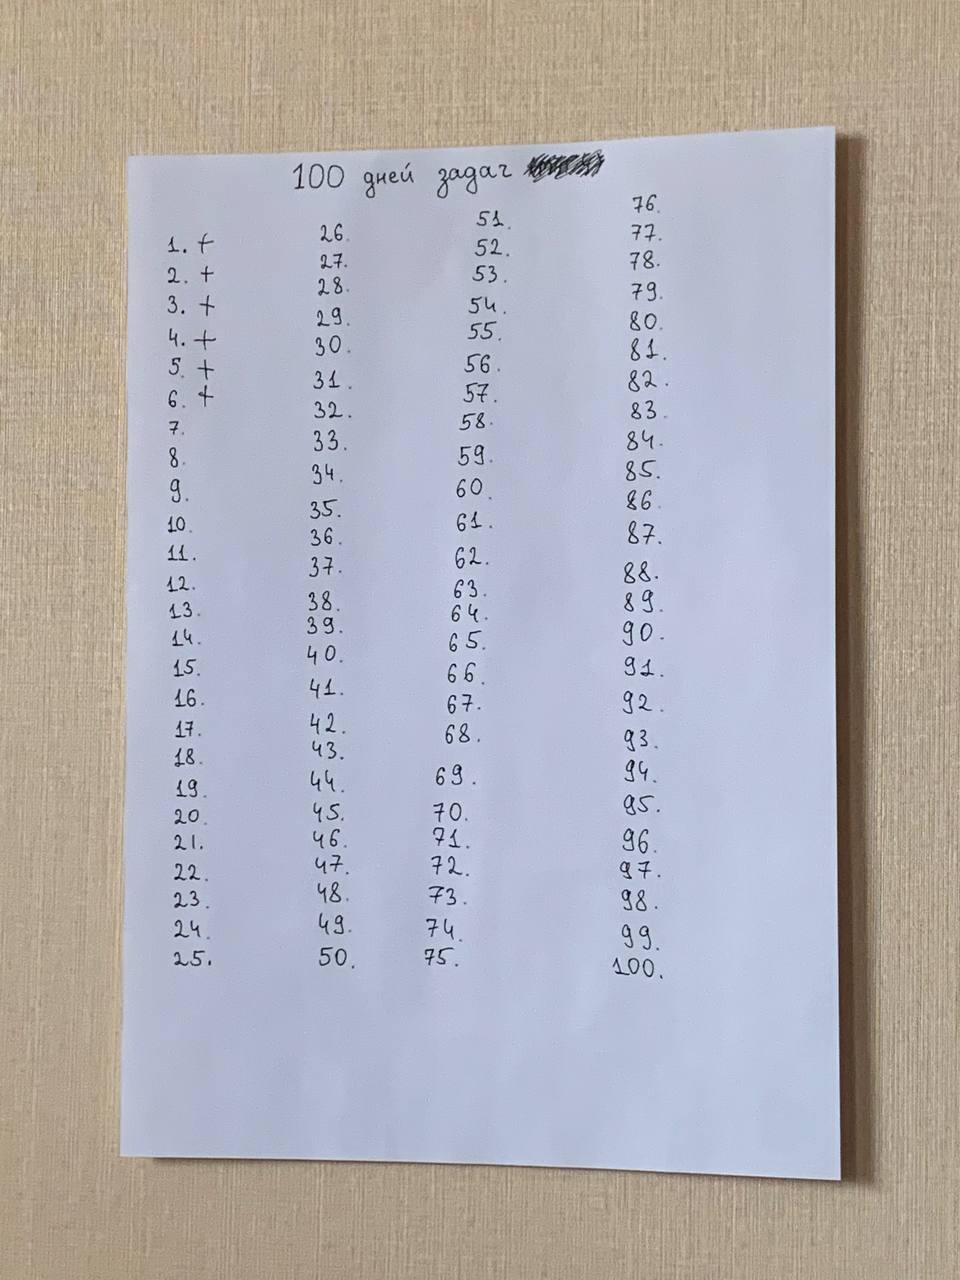 100 дней задач
1. +
2. +
3. +
4. +
5. +
6. +
7.
8.
9.
10.
11.
12.
13.
14.
15.
16.
17.
18.
19.
20.
21.
22.
23.
24.
25.
26.
27.
28.
29.
30.
31.
32.
33.
34.
35.
36.
37.
38.
39.
40.
41.
42.
43.
44.
45.
46.
47.
48.
49.
50.
51.
52.
53.
54.
55.
56.
57.
58.
59.
60.
61.
62.
63.
64.
65.
66.
67.
68.
69.
70.
71.
72.
73.
74.
75.
76.
77.
78.
79.
80.
81.
82.
83.
84.
85.
86.
87.
88.
89.
90.
91.
92.
93.
94.
95.
96.
97.
98.
99.
100.